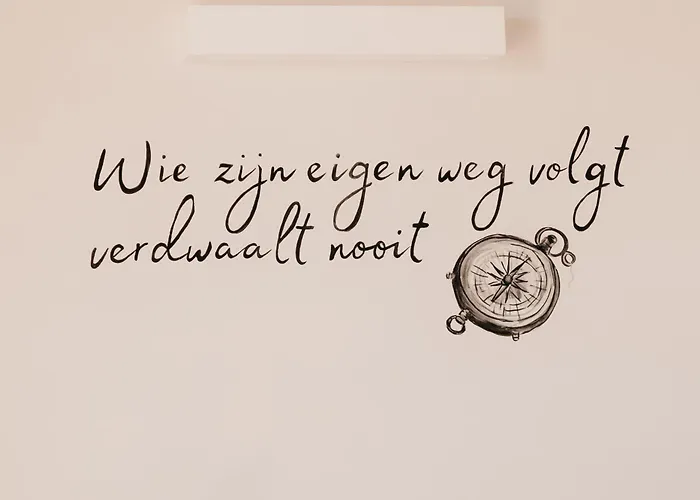 Wie zijn eigen weg volgt
verdwaalt nooit